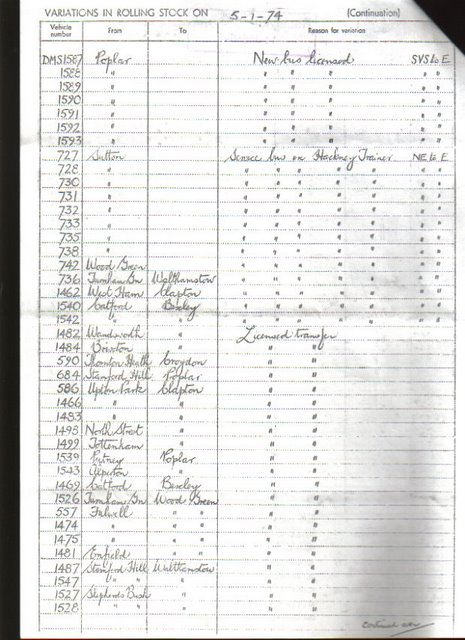 VARIATIONS IN ROLLING STOCK ON 5-1-74 (Continuation)
Vehicle number From To Reason for variation
DMS1587 Poplar New bus licensed SVS to E
1588 " " " " " "
1589 " " " " " "
1590 " " " " " "
1591 " " " " " "
1592 " " " " " "
1593 " " " " " "
727 Sutton Service bus on Hackney Trainer NE to E
728 " " " " " " " "
730 " " " " " " " "
731 " " " " " " " "
732 " " " " " " " "
733 " " " " " " " "
735 " " " " " " " "
738 " " " " " " " "
742 Wood Green " " " " " " "
736 Turnham Gn Walthamstow " " " " " " "
1462 West Ham Clapton " " " " " " "
1540 Catford Bexley " " " " " " "
1542 " " " " " " " " "
1482 Wandsworth " Licensed transfer
1484 Brixton " " "
590 Thornton Heath Croydon " "
684 Stamford Hill Poplar " "
586 Upton Park Clapton " "
1466 " " " "
1483 " " " "
1498 North Street " " "
1499 Tottenham " " "
1539 Putney Poplar " "
1543 Alperton " " "
1469 Catford Bexley " "
1526 Turnham Gn Wood Green " "
557 Fulwell " " " "
1474 " " " " "
1475 " " " " "
1481 Enfield " " " "
1487 Stamford Hill Walthamstow " "
1547 " " " " "
1527 Shepherds Bush " " "
1528 " " " " "
Continued over